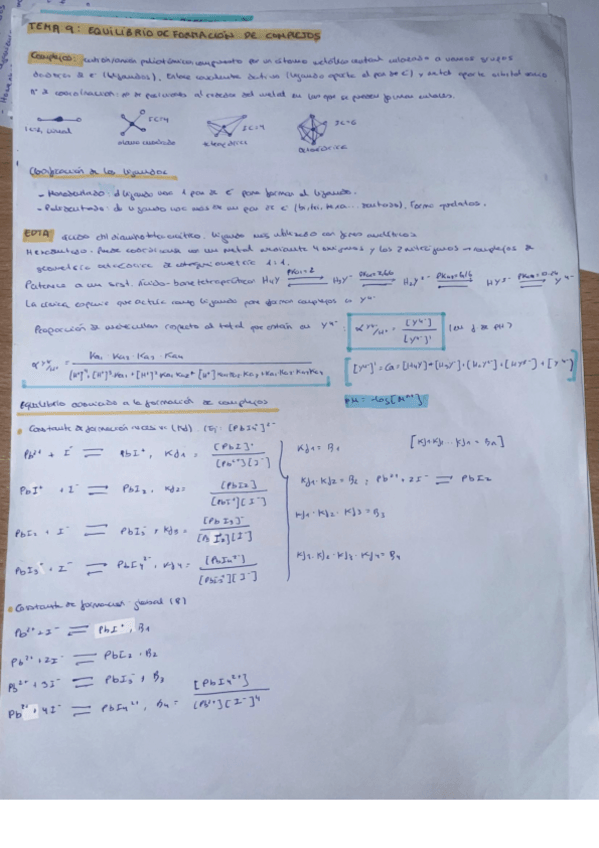 TEMA 9: EQUILIBRIO DE FORMACIÓN DE COMPLEJOS
Complejos: poliatómica compuesta por un átomo metálico central a varios grupos
dadores de e⁻ (ligandos). Enlace covalente dativo (ligando aporta el par de e⁻) y metal aporta orbital vacío
Nº de coordinación: nº de alrededor del metal en los que se pueden formar enlaces.
IC=2, lineal
IC=4
plano cuadrado
IC=4
tetraédrica
IC=6
octaédrica
Clasificación de los ligandos
- Monodentado: el ligando usa 1 par de e⁻ para formar el ligando.
- Polidentado: el ligando usa más de un par de e⁻ (bi, tri, tetra... dentados), forma quelatos.
EDTA ácido etilendiaminotetraacético, ligando más utilizado con fines analíticos
Hexadentado. Puede coordinarse con un metal mediante 4 oxígenos y los 2 nitrógenos → complejos de
geometría octaédrica de estequiometría 1:1.
Pertenece a un sist. ácido-base tetraprótico: H₄Y ⇌ H₃Y⁻ ⇌ H₂Y²⁻ ⇌ HY³⁻ ⇌ Y⁴⁻
La única especie que actúa como ligando para formar complejos es Y⁴⁻
Proporción de moléculas respecto al total que están en Y⁴⁻: = [Y⁴⁻] / [Y⁴⁻]'
= Ka₁ · Ka₂ · Ka₃ · Ka₄ / [H⁺]⁴ + [H⁺]³Ka₁ + [H⁺]²Ka₁Ka₂ + [H⁺]Ka₁Ka₂Ka₃ + Ka₁Ka₂Ka₃Ka₄
[Y⁴⁻]' = Ca = [H₄Y] + [H₃Y⁻] + [H₂Y²⁻] + [HY³⁻] + [Y⁴⁻]
Equilibrio asociado a la formación de complejos
• Constante de formación sucesiva (Kf) Ej: [PbI₄]²⁻
Pb²⁺ + I⁻ ⇌ PbI⁺, Kf₁ = [PbI]⁺ / [Pb²⁺][I⁻]
Kf₁ = B₁
PbI⁺ + I⁻ ⇌ PbI₂, Kf₂ = [PbI₂] / [PbI⁺][I⁻]
Kf₁ · Kf₂ = B₂; Pb²⁺ + 2I⁻ ⇌ PbI₂
PbI₂ + I⁻ ⇌ PbI₃⁻, Kf₃ = [PbI₃⁻] / [PbI₂][I⁻]
Kf₁ · Kf₂ · Kf₃ = B₃
PbI₃⁻ + I⁻ ⇌ PbI₄²⁻, Kf₄ = [PbI₄²⁻] / [PbI₃⁻][I⁻]
Kf₁ · Kf₂ · Kf₃ · Kf₄ = B₄
• Constante de formación global (B)
Pb²⁺ + I⁻ ⇌ PbI⁺, B₁
Pb²⁺ + 2I⁻ ⇌ PbI₂, B₂
Pb²⁺ + 3I⁻ ⇌ PbI₃⁻, B₃
Pb²⁺ + 4I⁻ ⇌ PbI₄²⁻, B₄ = [PbI₄²⁻] / [Pb²⁺][I⁻]⁴